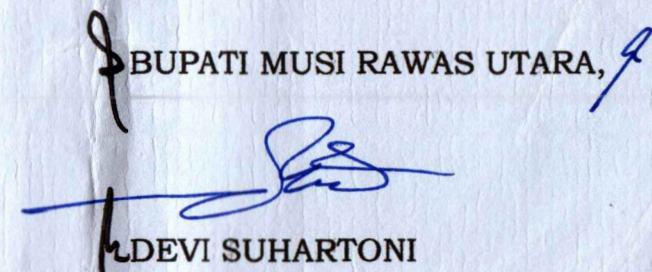 BUPATI MUSI RAWAS UTARA,
DEVI SUHARTONI